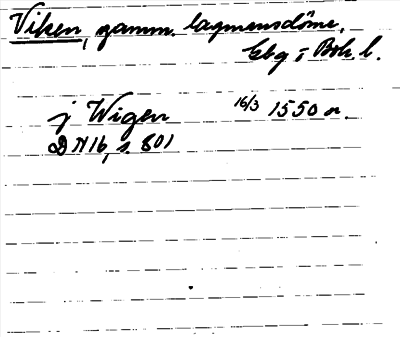 Viken, gamm. lagmansdöme,
Gbg o Boh. l.
j Wigen 16/3 1550 n.
DN 16, s. 801